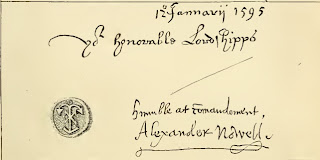 12º Januarii 1595
yoʳ honorable Lordshipps
humble at comaundement,
Alexander Nowell